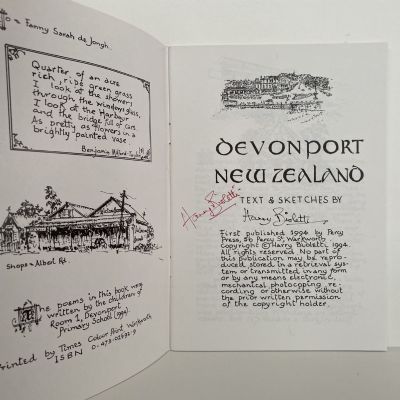 To = Fanny Sarah de Jongh.
Quarter of an acre
rich, ripe green grass
I look at the showers
through the windows glass,
I look at the Harbour
and the bridge full of cars
As pretty as flowers in a
brightly painted vase
Benjamin
Shops = Albert Rd.
The poems in this book were
written by the children of
Room 1, Devonport
Primary School (1994).
Printed by Times Colour Print Warkworth
ISBN 0-473-02692-9
DEVONPORT
NEW ZEALAND
TEXT & SKETCHES BY
Harry Bioletti
Harry Bioletti
First published 1994 by Percy
Press, 56 Percy S, Warkworth
Copyright © Harry Bioletti, 1994.
All rights reserved. No part of
this publication may be repro-
duced stored in a retrieval sys-
tem or transmitted in any form
or by any means electronic,
mechanical photocopying, re-
cording or otherwise without
the prior written permission
of the copyright holder.